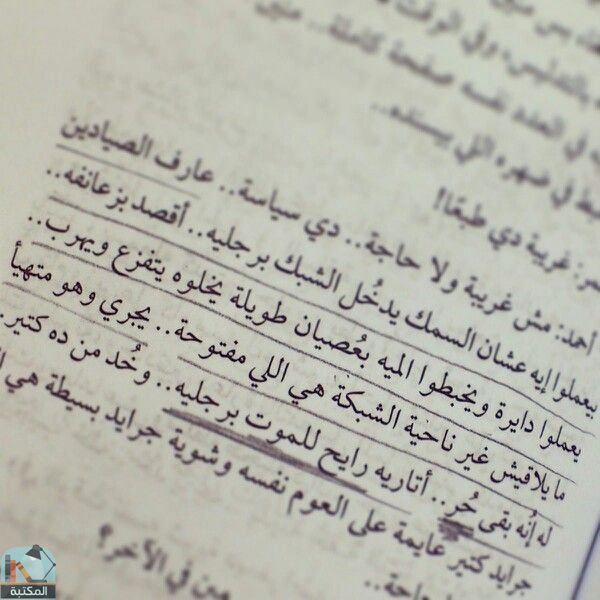 بالتدليس، وفي الوقت
في العدد نفسه صفحة كاملة.. متبني
في ضهره اللي بيسنده..
غريبة دي طبعًا!
أحمد: مش غريبة ولا حاجة.. دي سياسة.. عارف الصيادين
بيعملوا إيه عشان السمك يدخُل الشبك برجليه.. أقصد بزعانفه..
يعملوا دايرة ويخبطوا الميه بعُصيان طويلة يخلوه يتفزع ويهرب..
ما يلاقيش غير ناحية الشبكة هي اللي مفتوحة.. يجري وهو متهيأ
له إنُه بقى حُر.. أتاريه رايح للموت برجليه.. وخُد من ده كتير..
جرايد كتير عايمة على العوم نفسه وشوية جرايد بسيطة هي
مين في الآخر؟
المكتبة